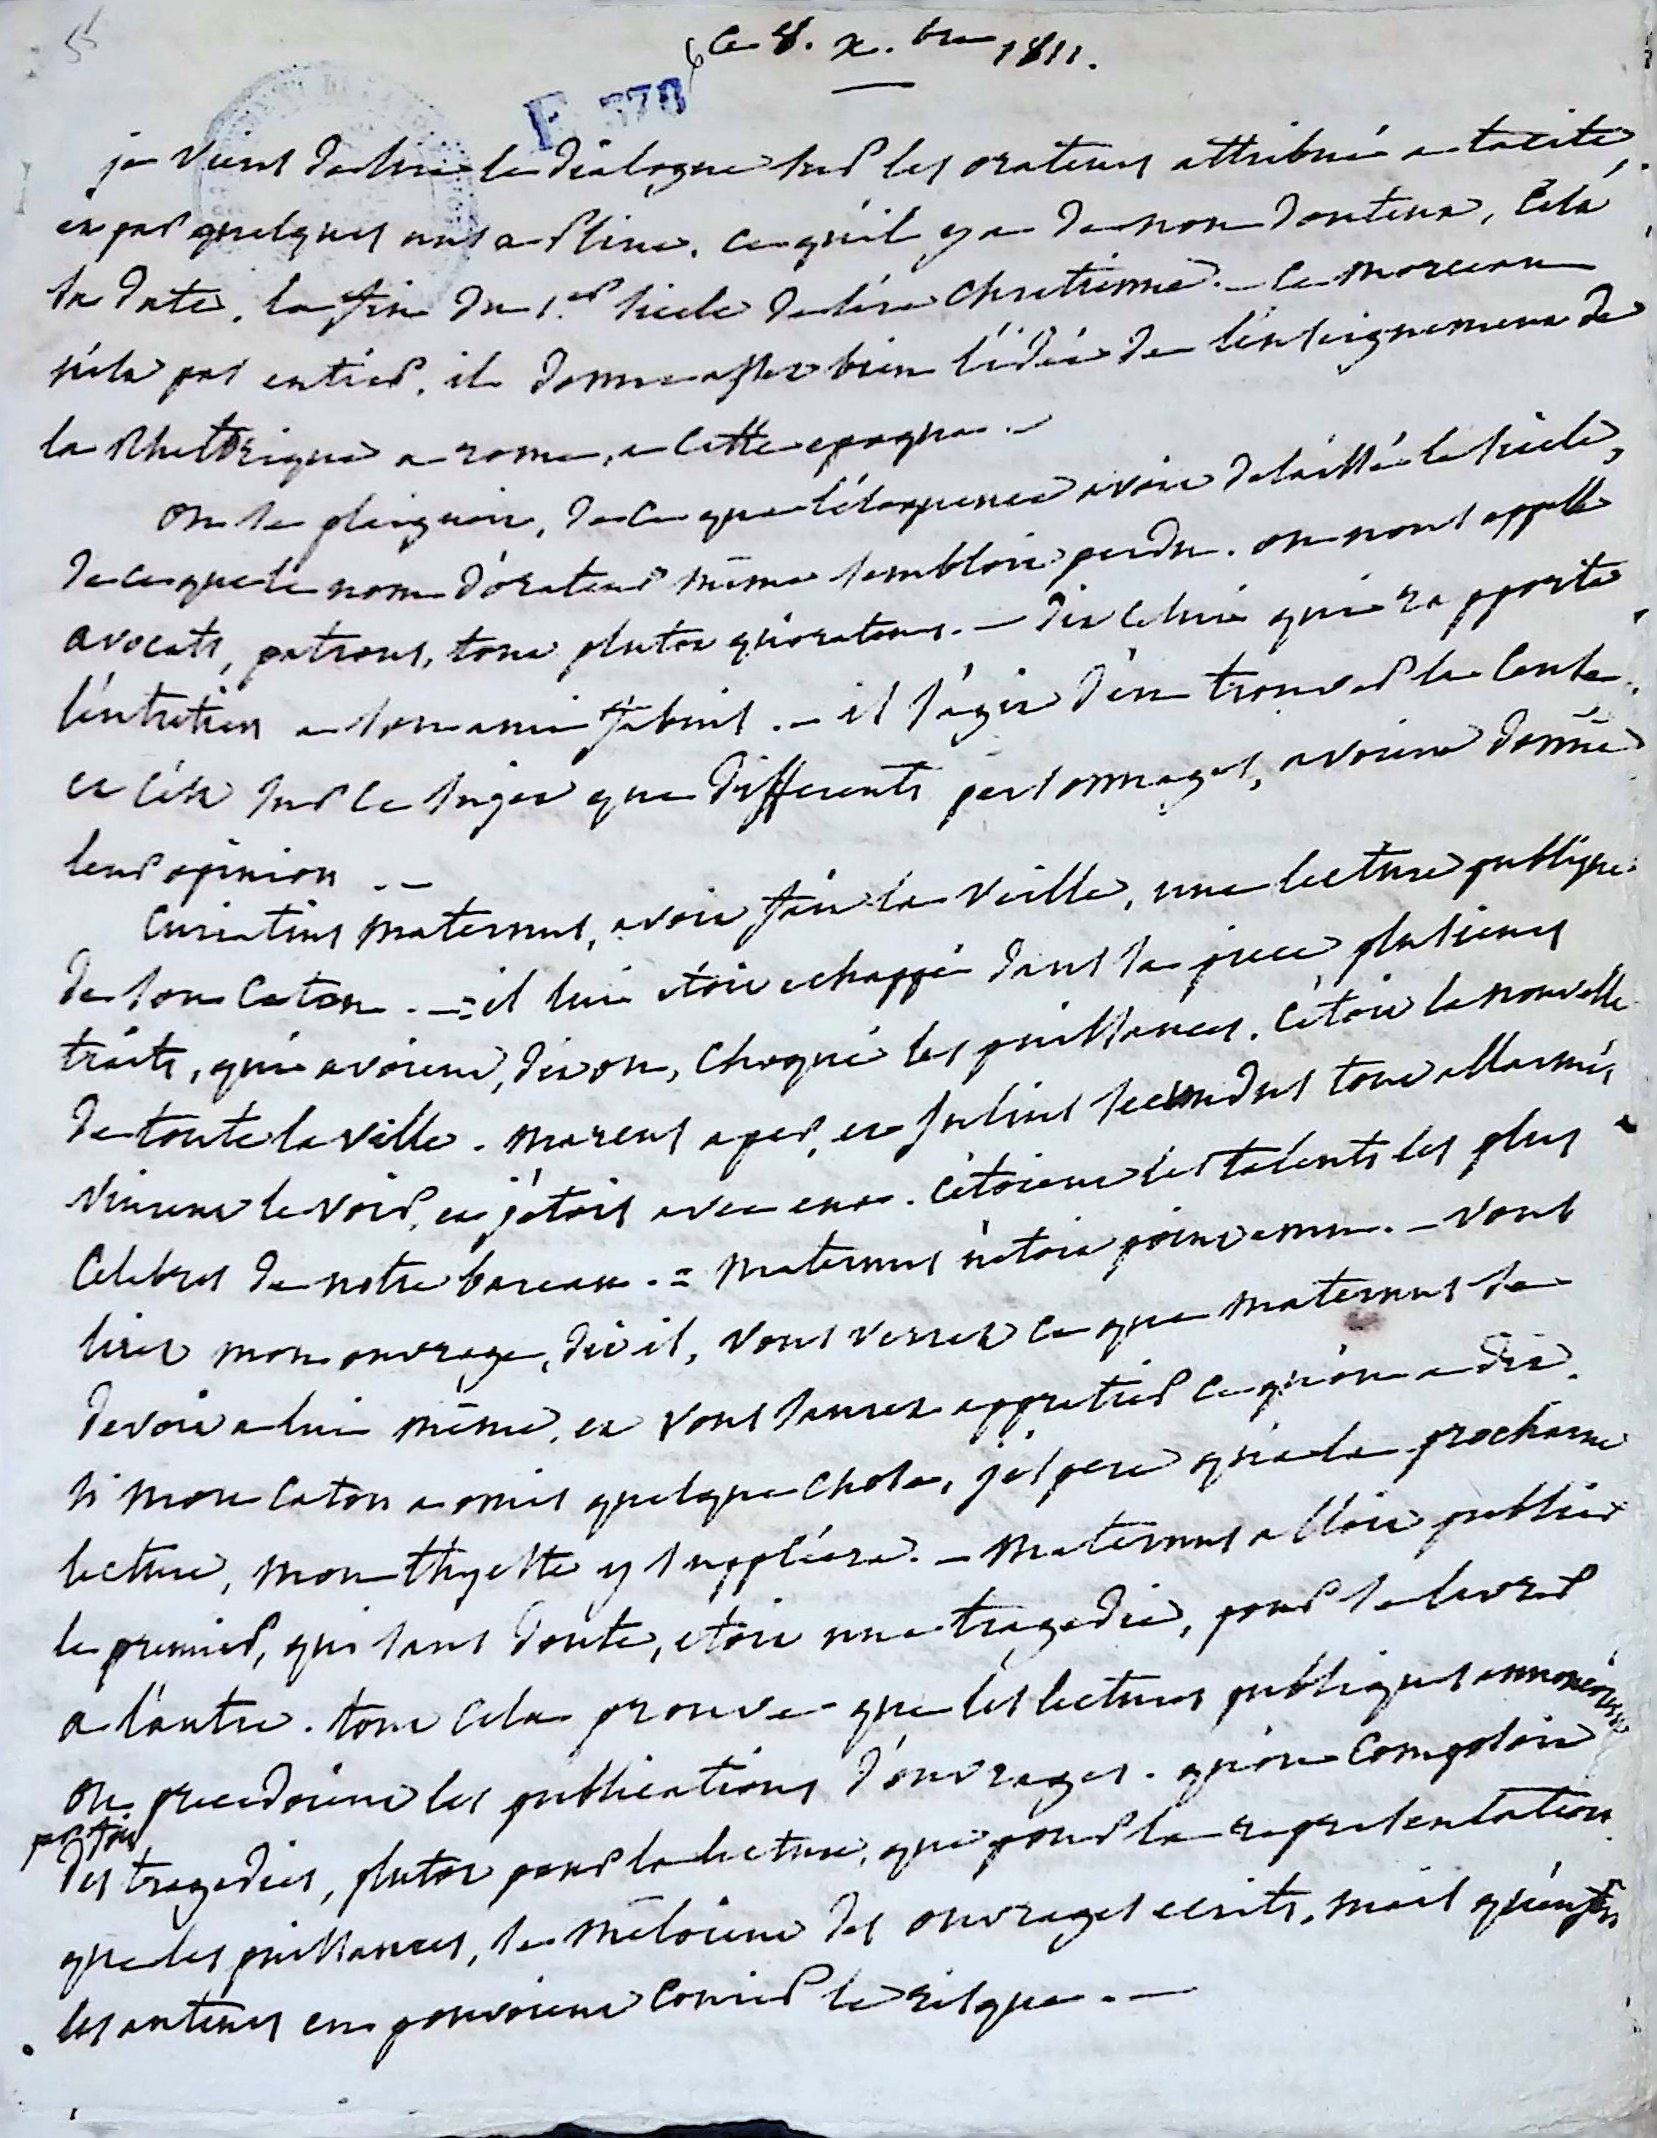 55
ce 8. x.bre 1811.
E 378
je viens de lire le dialogue sur les orateurs attribué a tacite,
et par quelques uns a Pline. ce qu'il y a de non douteux, c'est
sa date. la fin du 1.er siecle de l'ère chretienne. — ce morceau
n'est pas entier. il donne assez bien l'idée de l'enseignement de
la Rhetorique a rome, a cette epoque. —
on se plaignoit, de ce que l'éloquence avoit delaissé le siecle,
de ce que le nom d'orateur même sembloit perdu. on nous appelle
avocats, patrons, tout plutot qu'orateurs. — dit celui qui rapporte
l'entretien a son ami fabius. — il s'agit d'en trouver la cause.
et c'est sur ce sujet que differents personnages, avoient donné
leur opinion. —
Curiatius maternus, avoit fait la veille, une lecture publique
de son Caton. —: il lui etoit echappé dans sa piece plusieurs
traits, qui avoient, dit on, choqué les puissances. c'étoit la nouvelle
de toute la ville. marcus aper, et Julius secundus tout allarmés
vinrent le voir, et j'étois avec eux. c'étoient les talents les plus
celebres de notre bareau. = maternus n'etoit point emu. — vous
lirez mon ouvrage, dit il, vous verrez ce que maternus se
devoit a lui même, et vous saurez appretier ce qu'on a dit.
si mon Caton a omis quelque chose, j'espere qu'a la prochaine
lecture, mon thyeste y suppléera. — maternus alloit publier
le premier, qui sans doute, etoit une tragedie, pour se livrer
a l'autre. tout cela prouve que les lectures publiques annoncoient
ou precedoient les publications d'ouvrages. qu'on composoit
par fois
des tragedies, plutot pour la lecture, que pour la representation
que les puissances, se mêloient des ouvrages ecrits, mais qu'enfin
les auteurs en pouvoient courir le risque. —